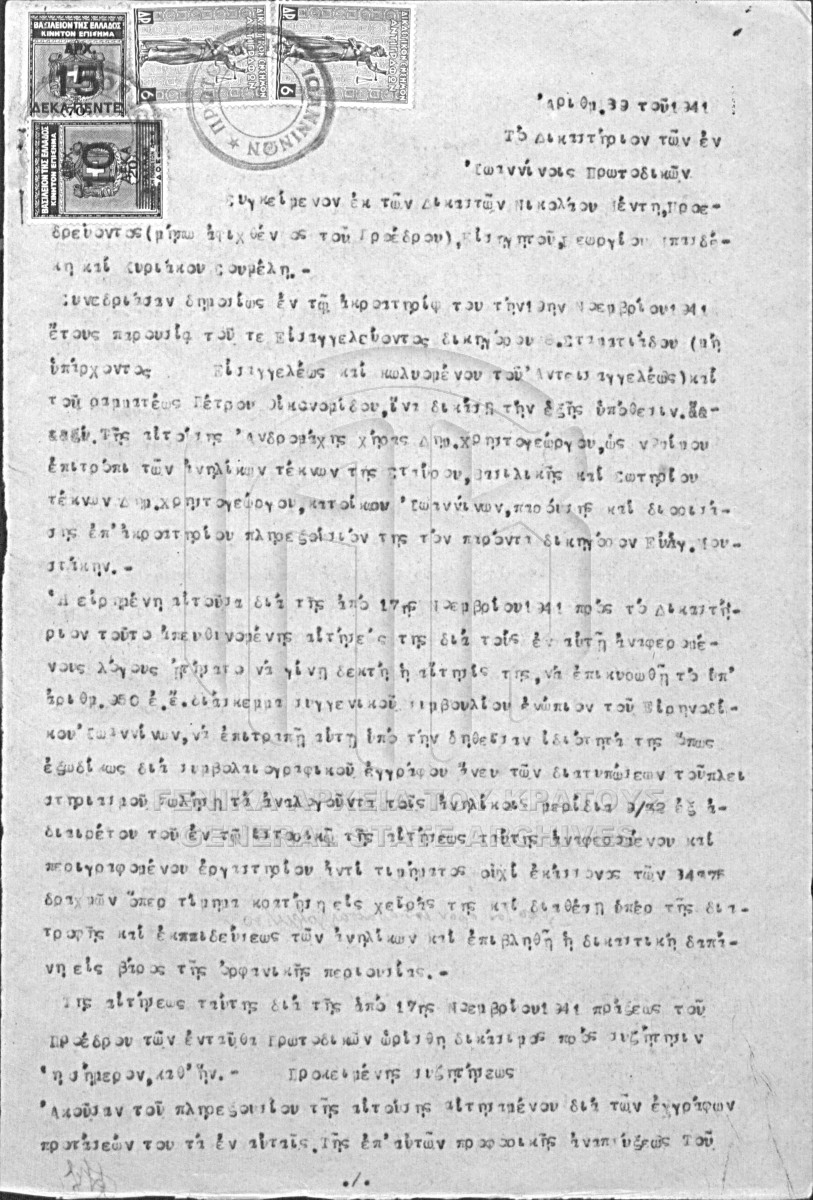 ΒΑΣΙΛΕΙΟΝ ΤΗΣ ΕΛΛΑΔΟΣ
ΚΙΝΗΤΟΝ ΕΠΙΣΗΜΑ
ΔΡΧ.
15
ΔΕΚΑΠΕΝΤΕ
ΒΑΣΙΛΕΙΟΝ ΤΗΣ ΕΛΛΑΔΟΣ
ΚΙΝΗΤΟΝ ΕΠΙΣΗΜΑ
10
ΔΕΚΑ
ΙΩΑΝΝΙΝΩΝ
Ἀριθμ. 39 τοῦ 1941
Τὸ Δικαστήριον τῶν ἐν
Ἰωαννίνοις Πρωτοδικῶν
Συγκείμενον ἐκ τῶν Δικαστῶν Νικολάου Προε-
δρεύοντος (μήπω ἀφιχθέντος τοῦ Προέδρου), Εἰσηγητοῦ, Γεωργίου
κη καὶ Κυριάκου Σουμέλη.-
Συνεδριάσαν δημοσίως ἐν τῷ ἀκροατηρίῳ του τὴν 19ην Νοεμβρίου 1941
ἔτους παρουσίᾳ τοῦ τε Εἰσαγγελεύοντος δικηγόρου Σταματιάδου (μὴ
ὑπάρχοντος Εἰσαγγελέως καὶ κωλυομένου τοῦ Ἀντεισαγγελέως) καὶ
τοῦ ραμματέως Πέτρου Οἰκονομίδου, ἵνα δικάσῃ τὴν ἑξῆς ὑπόθεσιν.
Τῆς αἰτούσης Ἀνδρομάχης χήρας Δημ. Χρηστογεώργου, ὡς νομίμου
ἐπιτρόπου τῶν ἀνηλίκων τέκνων της Σταύρου, Βασιλικῆς καὶ Σωτηρίου
τέκνων Δημ. Χρηστογεώργου, κατοίκων Ἰωαννίνων, παρούσης καὶ διορισά-
σης ἐπ' ἀκροατηρίου πληρεξούσιόν της τὸν παρόντα δικηγόρον Εὐάγ. Μου-
στάκην.-
Ἡ εἰρημένη αἰτοῦσα διὰ τῆς ἀπὸ 17ης Νοεμβρίου 1941 πρὸς τὸ Δικαστή-
ριον τοῦτο ἀπευθυνομένης αἰτήσεώς της διὰ τοὺς ἐν αὐτῇ ἀναφερομέ-
νους λόγους ᾐτήσατο νὰ γίνῃ δεκτὴ ἡ αἴτησίς της, νὰ ἐπικυρωθῇ τὸ ὑπ'
ἀριθμ. ἐ.ἔ. διάσκεμμα συγγενικοῦ συμβουλίου ἐνώπιον τοῦ Εἰρηνοδί-
κου Ἰωαννίνων, νὰ ἐπιτραπῇ αὐτῇ ὑπὸ τὴν δηθεῖσαν ἰδιότητά της ὅπως
ἐξωδίκως διὰ συμβολαιογραφικοῦ ἐγγράφου ἄνευ τῶν διατυπώσεων τοῦ πλει
στηριασμοῦ πωλήσῃ τὰ ἀναλογοῦντα τοῖς ἀνηλίκοις μερίδια ἐξ ἀ-
διαιρέτου τοῦ ἐν τῷ ἱστορικῷ τῆς αἰτήσεως ταύτης ἀναφερομένου καὶ
περιγραφομένου ἐργαστηρίου ἀντὶ τιμήματος οὐχὶ ἐλάσσονος τῶν
δραχμῶν ὅπερ τίμημα κρατήσῃ εἰς χεῖράς της καὶ διαθέσῃ ὑπὲρ τῆς δια-
τροφῆς καὶ ἐκπαιδεύσεως τῶν ἀνηλίκων καὶ ἐπιβληθῇ ἡ δικαστικὴ δαπά-
νη εἰς βάρος τῆς ὀρφανικῆς περιουσίας.-
Τῆς αἰτήσεως ταύτης διὰ τῆς ἀπὸ 17ης Νοεμβρίου 1941 πράξεως τοῦ
Προέδρου τῶν ἐνταῦθα Πρωτοδικῶν ὡρίσθη δικάσιμος πρὸς συζήτησιν
ἡ σήμερον, καθ' ἥν.- Προκειμένης συζητήσεως
Ἀκοῦσαν τοῦ πληρεξουσίου τῆς αἰτούσης αἰτησαμένου διὰ τῶν ἐγγράφων
προτάσεών του τὰ ἐν αὐταῖς. Τῆς ἐπ' αὐτῶν προφορικῆς ἀναπτύξεως Τοῦ
./.
ΓΕΝΙΚΑ ΑΡΧΕΙΑ ΤΟΥ ΚΡΑΤΟΥΣ
GENERAL STATE ARCHIVES